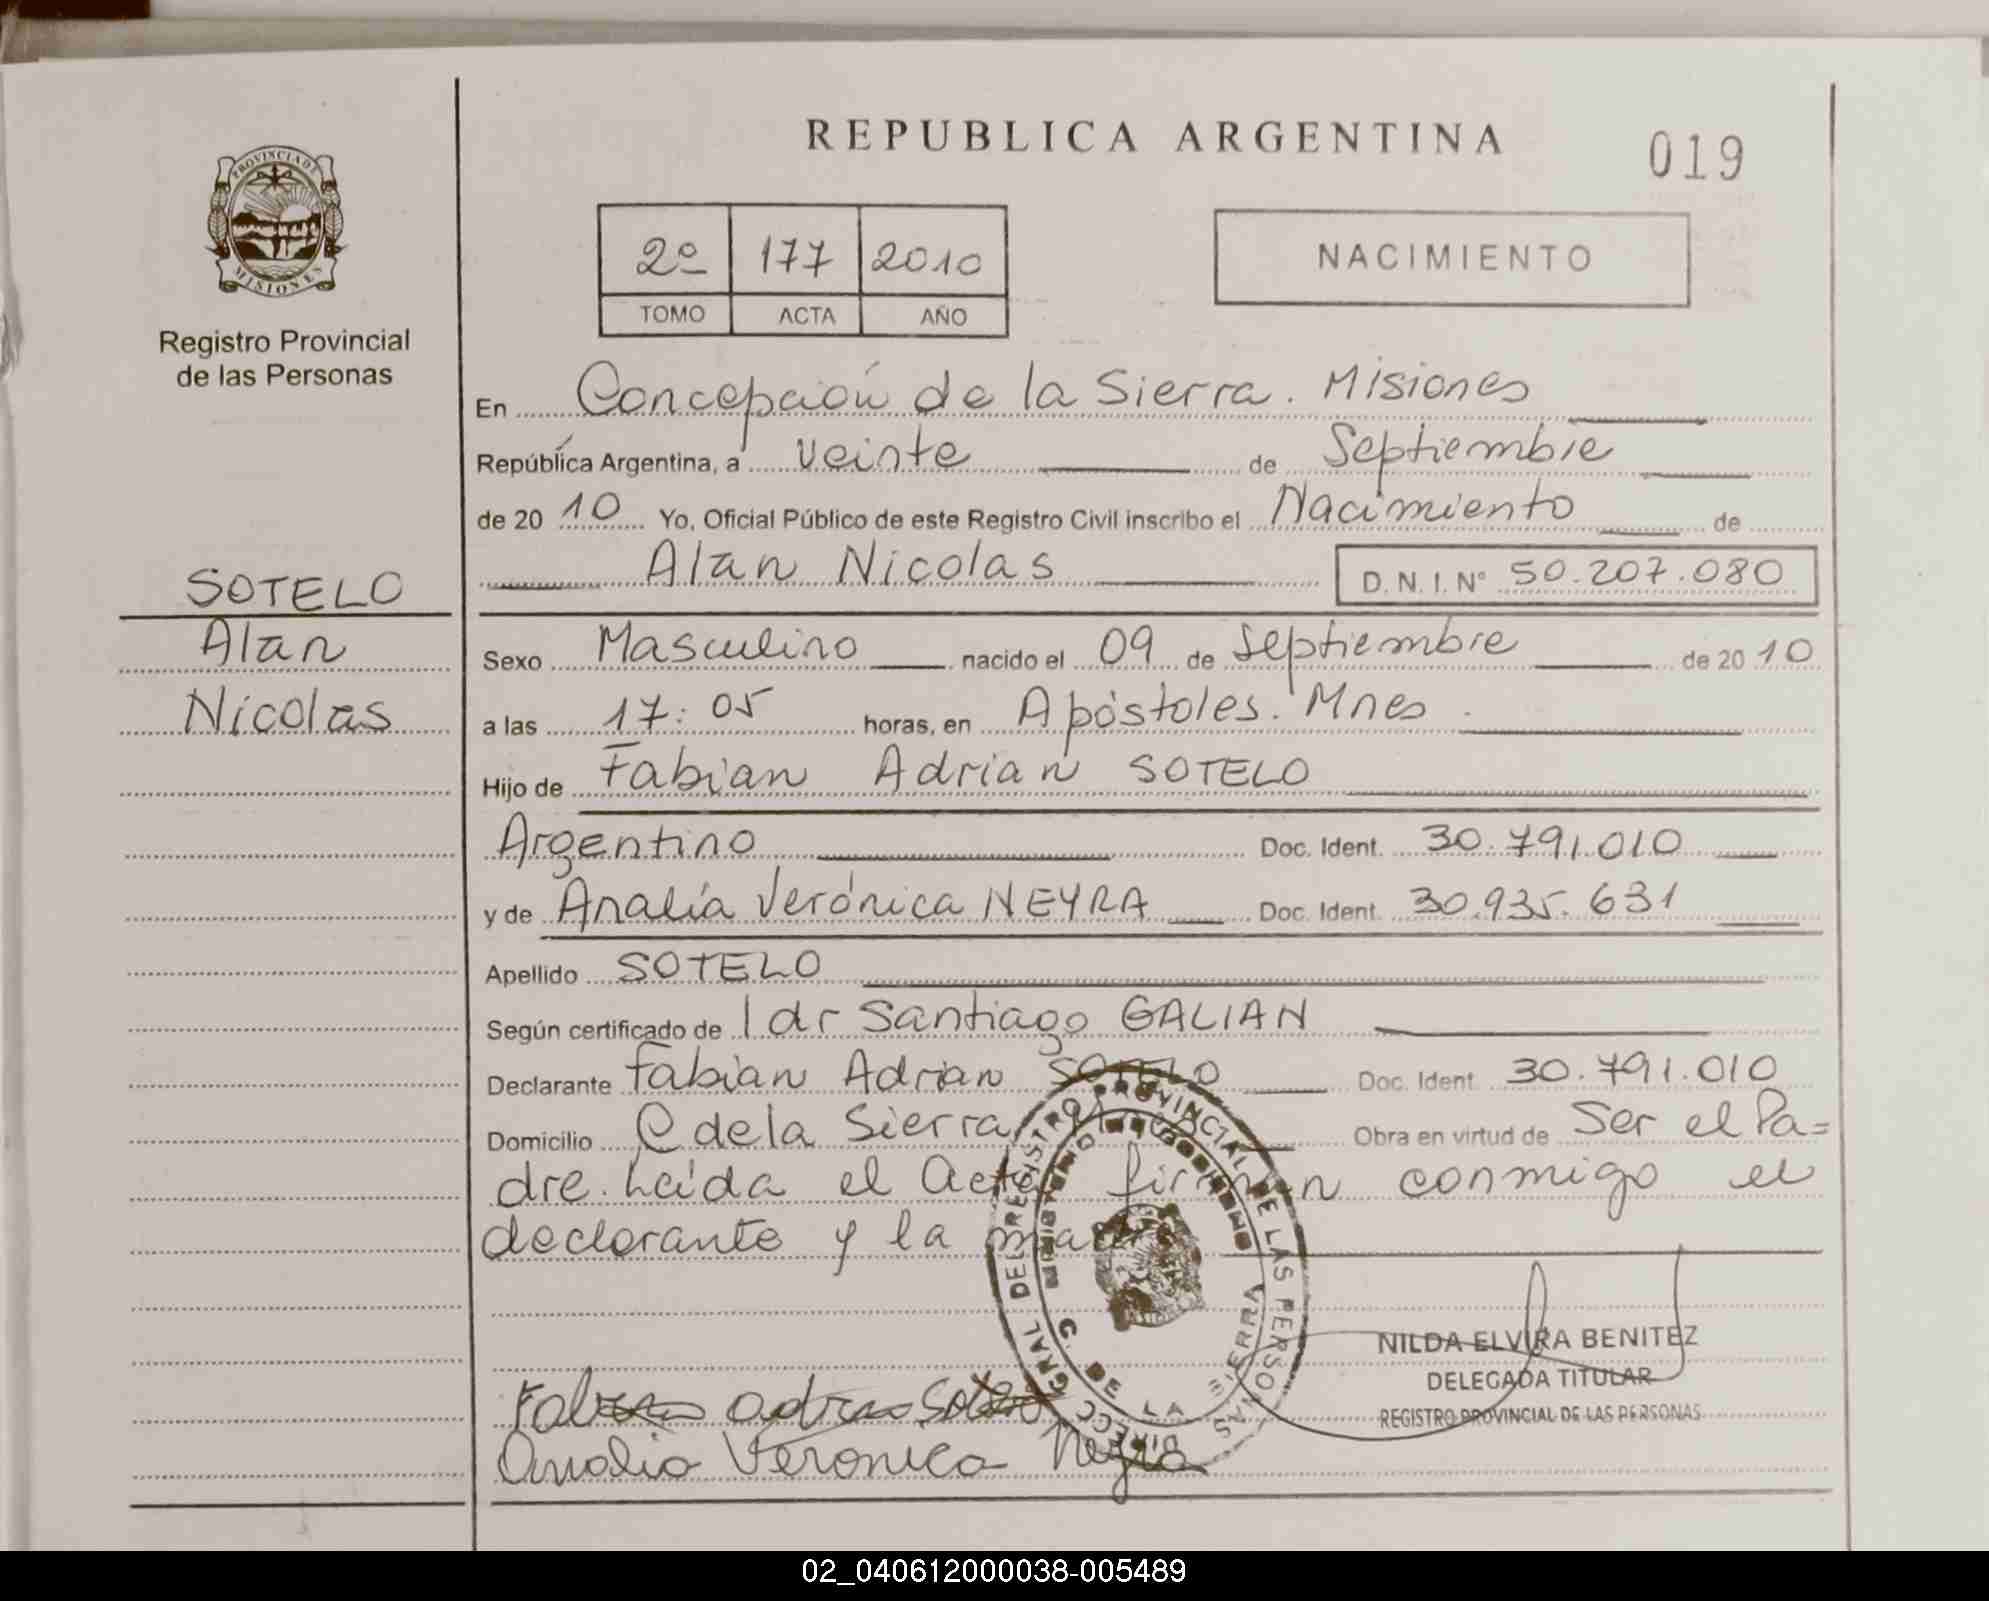 REPUBLICA ARGENTINA
019
PROVINCIA DE
MISIONES
Registro Provincial
de las Personas
2º 177 2010
TOMO ACTA AÑO
NACIMIENTO
En Concepción de la Sierra. Misiones
República Argentina, a veinte de Septiembre
de 20 10 Yo, Oficial Público de este Registro Civil inscribo el Nacimiento de
Alan Nicolas D.N.I. Nº 50.207.080
SOTELO
Alan
Nicolas
Sexo Masculino nacido el 09 de Septiembre de 20 10
a las 17:05 horas, en Apóstoles. Mnes.
Hijo de Fabian Adrian SOTELO
Argentino Doc. Ident. 30.791.010
y de Analía Verónica NEYRA Doc. Ident. 30.935.631
Apellido SOTELO
Según certificado de 1 dr Santiago GALIAN
Declarante Fabian Adrian SOTELO Doc. Ident 30.791.010
Domicilio C de la Sierra Obra en virtud de Ser el Pa=
dre. Leída el Acta firman conmigo el
declarante y la
DIRECC GRAL DEL REGISTRO PROVINCIAL DE LAS PERSONAS
MINISTERIO DE GOBIERNO
C. DE LA SIERRA
NILDA ELVIRA BENITEZ
DELEGADA TITULAR
REGISTRO PROVINCIAL DE LAS PERSONAS
Fabian adrian Sotelo
Analia Veronica Neyra
02_040612000038-005489